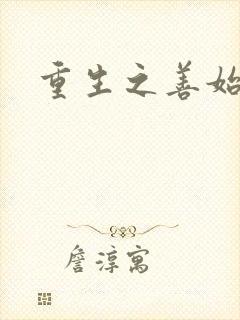 重生之善始
詹淳寓